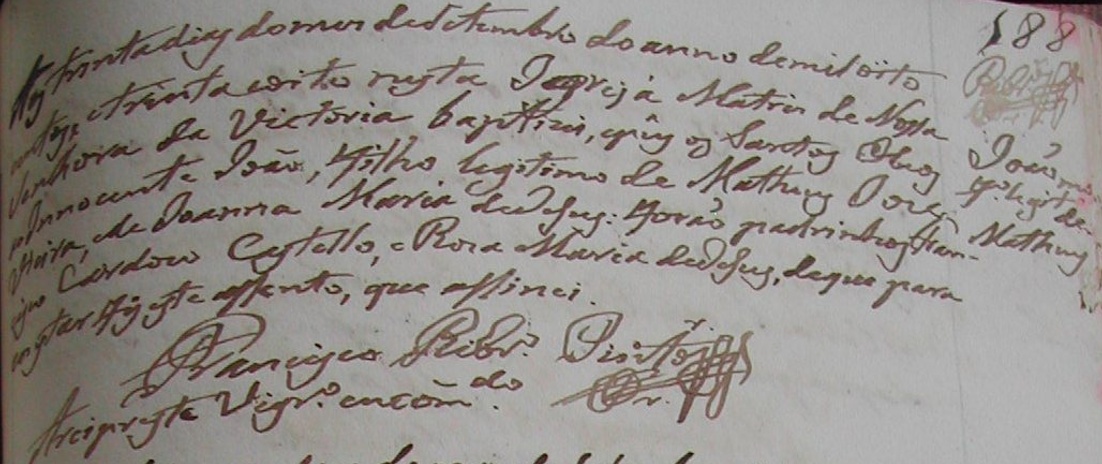 Aos trinta dias do mes de Setembro do anno de mil oito
centos, e trinta e oito nesta Igreja Matriz de Nossa
Senhora da Victoria baptizei, e puz os Santos Oleos
o Innocente João, filho legitimo de Matheus Jose
Vieira, e de Joanna Maria de Jesus: forão padrinhos Fran-
cisco Cardozo Castello, e Roza Maria de Jesus, de que para
constar fiz este assento, que assinei.
Francisco Ribr.º Pinto
Arcipreste Vigr.º encom.do
188
João
fº. legit. de
Matheus